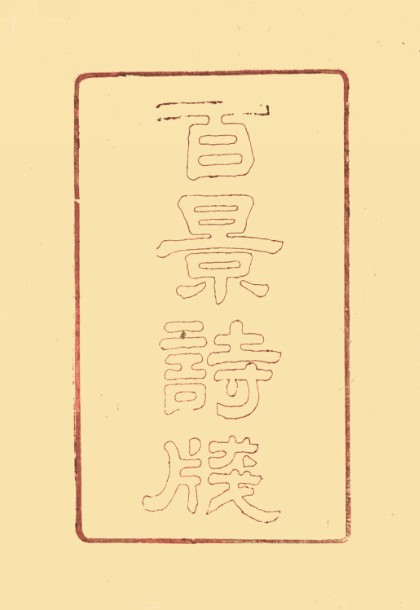 百景詩牋